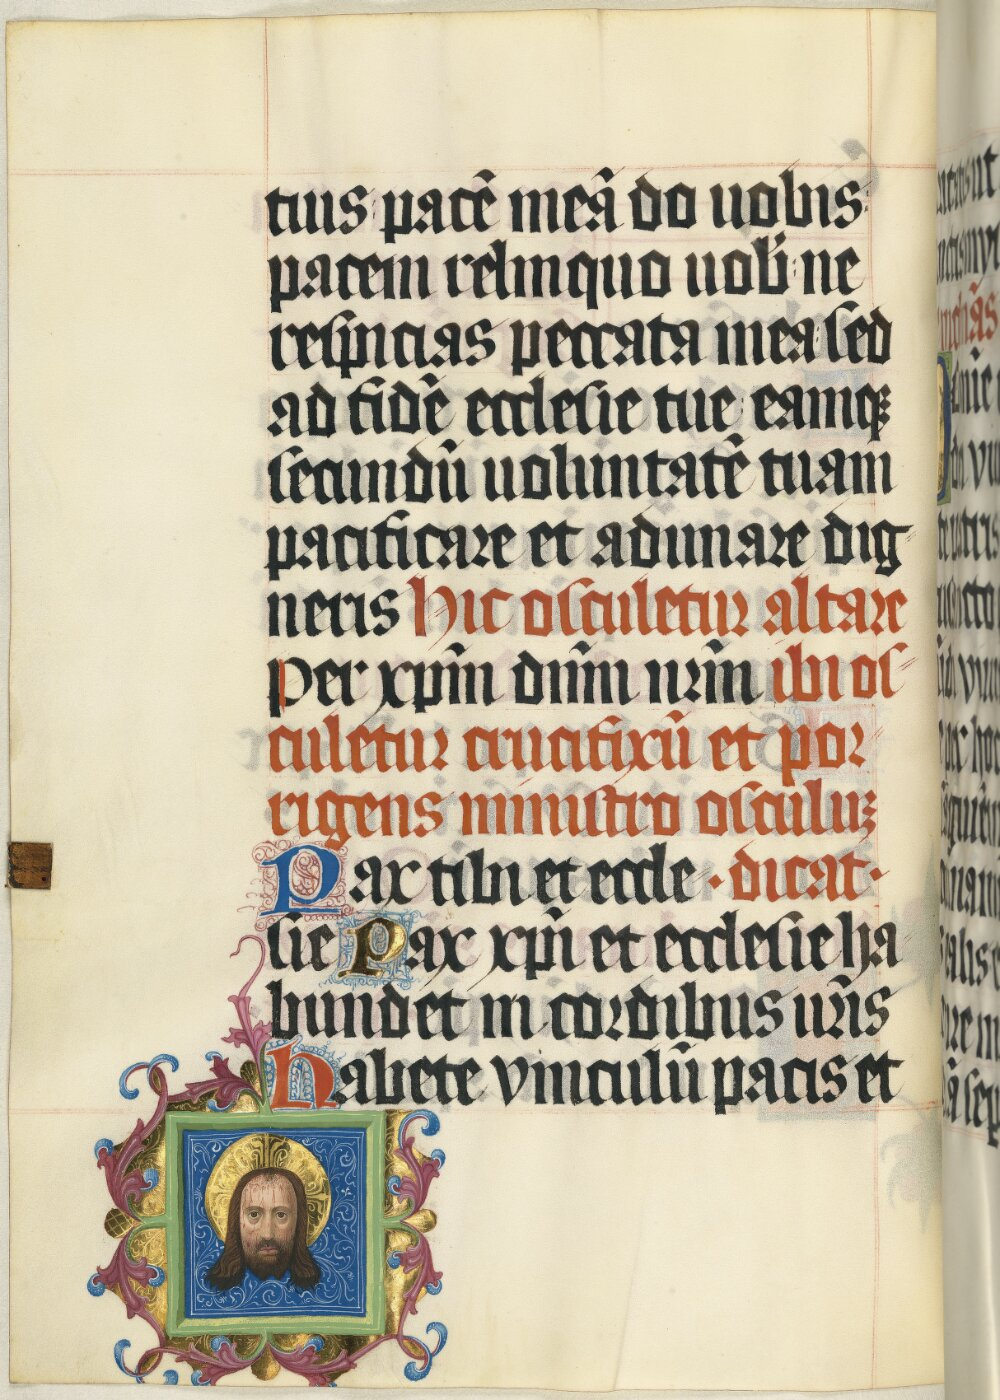 tuis pacē meā do uobis
pacem relinquo uob: ne
respicias peccata mea sed
ad fidē ecclesie tue eamqꝫ
secundū uoluntatē tuam
pacificare et adunare dig
neris hic osculetur altare
Per xp̄m dn̄m nr̄m ibi os-
culetur crucifixū et por
rigens ministro osculuꝫ
Pax tibi et eccle · dicat ·
sie Pax xp̄i et ecclesie ha
bundet in cordibus ur̄is
habete vinculū pacis et